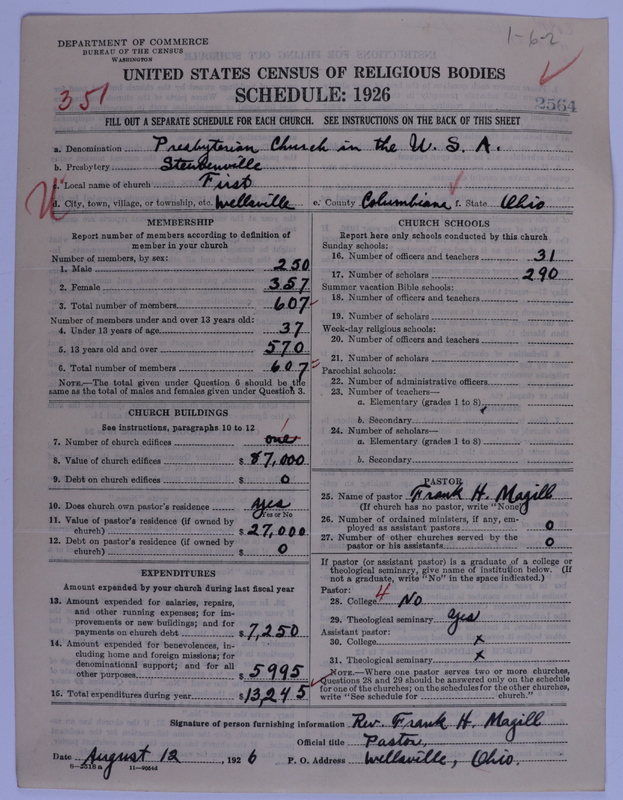 1-6-2
DEPARTMENT OF COMMERCE
BUREAU OF THE CENSUS
WASHINGTON
UNITED STATES CENSUS OF RELIGIOUS BODIES
SCHEDULE: 1926
351
2564
FILL OUT A SEPARATE SCHEDULE FOR EACH CHURCH. SEE INSTRUCTIONS ON THE BACK OF THIS SHEET
a. Denomination Presbyterian Church in the U. S. A.
b. Presbytery Steubenville
c. Local name of church First
d. City, town, village, or township, etc. Wellsville e. County Columbiana f. State Ohio
MEMBERSHIP
Report number of members according to definition of
member in your church
Number of members, by sex:
1. Male 250
2. Female 357
3. Total number of members 607
Number of members under and over 13 years old:
4. Under 13 years of age 37
5. 13 years old and over 570
6. Total number of members 607
NOTE.—The total given under Question 6 should be the
same as the total of males and females given under Question 3.
CHURCH BUILDINGS
See instructions, paragraphs 10 to 12
7. Number of church edifices one 1
8. Value of church edifices $ 87,000
9. Debt on church edifices $ 0
10. Does church own pastor's residence yes
Yes or No
11. Value of pastor's residence (if owned by
church) $ 27,000
12. Debt on pastor's residence (if owned by
church) $ 0
EXPENDITURES
Amount expended by your church during last fiscal year
13. Amount expended for salaries, repairs,
and other running expenses; for im-
provements or new buildings; and for
payments on church debt $ 7,250
14. Amount expended for benevolences, in-
cluding home and foreign missions; for
denominational support; and for all
other purposes $ 5995
15. Total expenditures during year $ 13,245
CHURCH SCHOOLS
Report here only schools conducted by this church
Sunday schools:
16. Number of officers and teachers 31
17. Number of scholars 290
Summer vacation Bible schools:
18. Number of officers and teachers
19. Number of scholars
Week-day religious schools:
20. Number of officers and teachers
21. Number of scholars
Parochial schools:
22. Number of administrative officers
23. Number of teachers—
a. Elementary (grades 1 to 8)
b. Secondary
24. Number of scholars—
a. Elementary (grades 1 to 8)
b. Secondary
PASTOR
25. Name of pastor Frank H. Magill
(If church has no pastor, write "None")
26. Number of ordained ministers, if any, em-
ployed as assistant pastors 0
27. Number of other churches served by the
pastor or his assistants 0
If pastor (or assistant pastor) is a graduate of a college or
theological seminary, give name of institution below. (If
not a graduate, write "No" in the space indicated.)
Pastor:
28. College 4 No
29. Theological seminary yes
Assistant pastor:
30. College x
31. Theological seminary x
NOTE.—Where one pastor serves two or more churches,
Questions 28 and 29 should be answered only on the schedule
for one of the churches; on the schedules for the other churches,
write "See schedule for church."
Signature of person furnishing information Rev. Frank H. Magill
Official title Pastor,
Date August 12, 1926 P. O. Address Wellsville, Ohio.